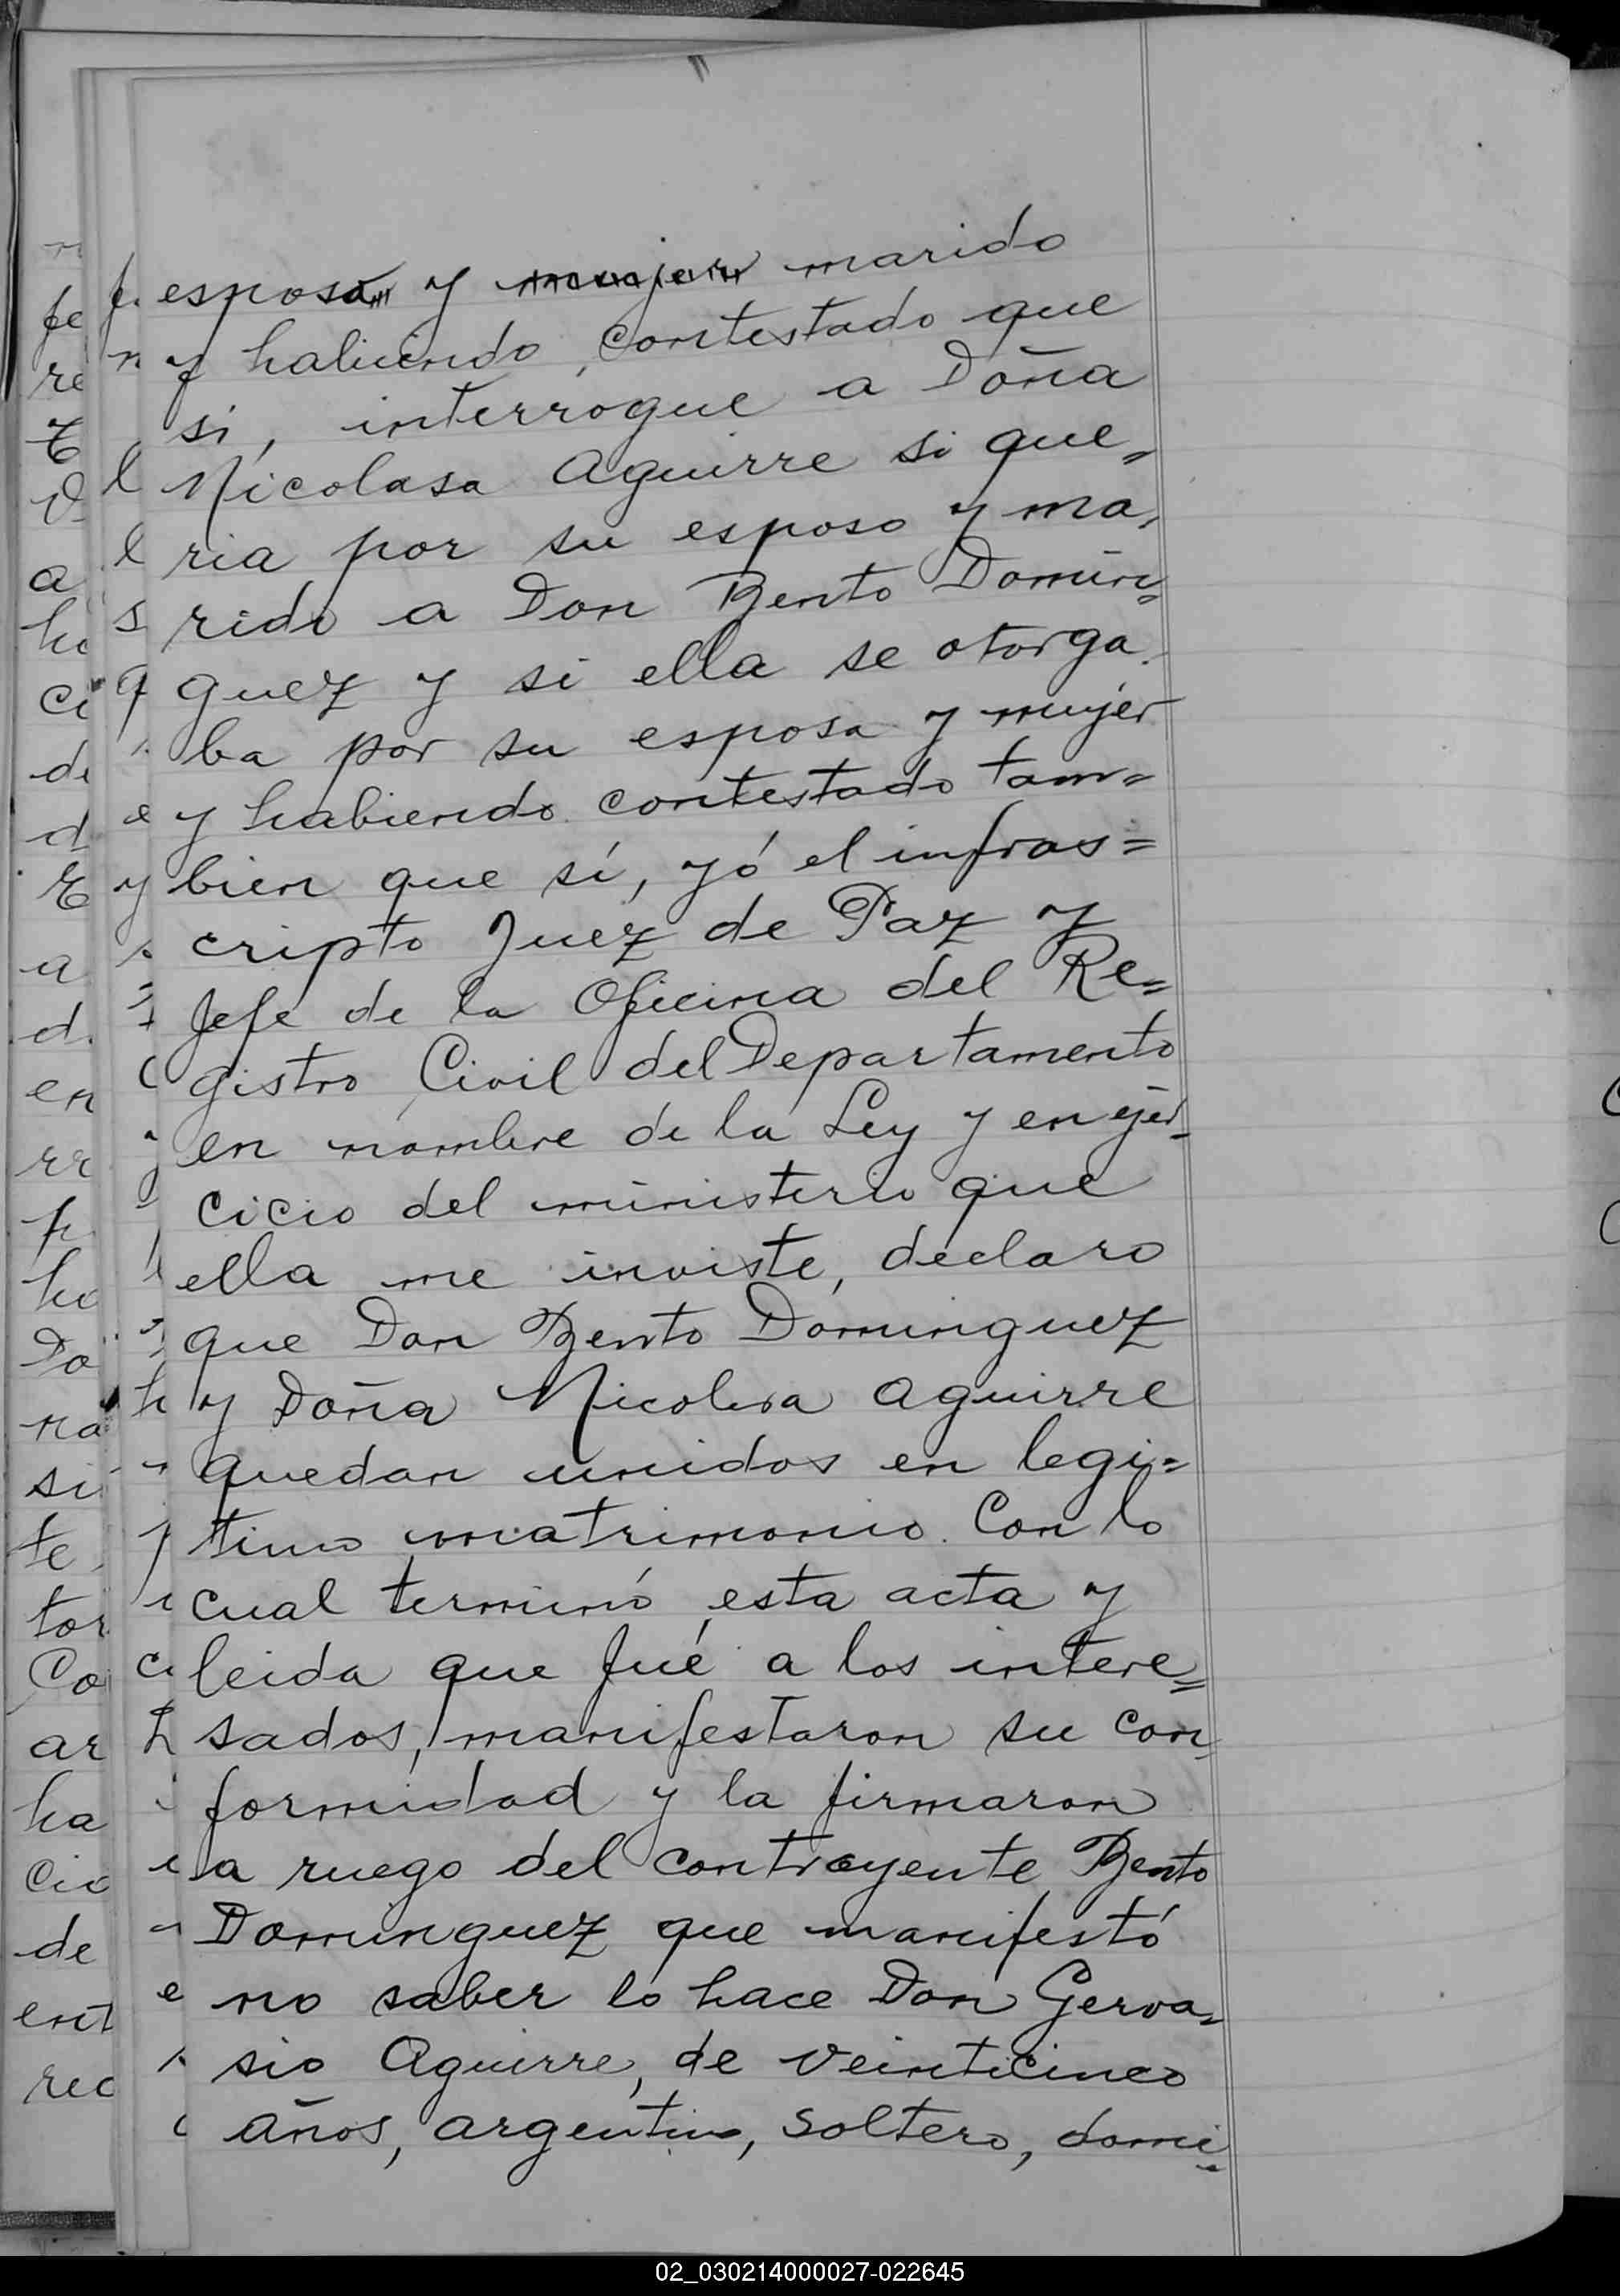 esposa y mujer marido
y habiendo contestado que
si, interrogue a Doña
Nicolasa Aguirre si que=
ria por su esposo y ma-
rido a Don Bento Domin=
guez y si ella se otorga-
ba por su esposa y mujer
y habiendo contestado tam=
bien que sí, yó el infras=
cripto Juez de Paz y
Jefe de la Oficina del Re=
gistro Civil del Departamento
en nombre de la Ley y en ejer-
cicio del ministerio que
ella me inviste, declaro
que Don Bento Dominguez
y Doña Nicolasa Aguirre
quedan unidos en legi=
timo matrimonio. Con lo
cual terminó esta acta y
leida que fué a los intere=
sados, manifestaron su con-
formidad y la firmaron
a ruego del contrayente Bento
Dominguez que manifestó
no saber lo hace Don Gerva=
sio Aguirre, de veinticinco
años, argentino, soltero, domi-
02_030214000027-022645